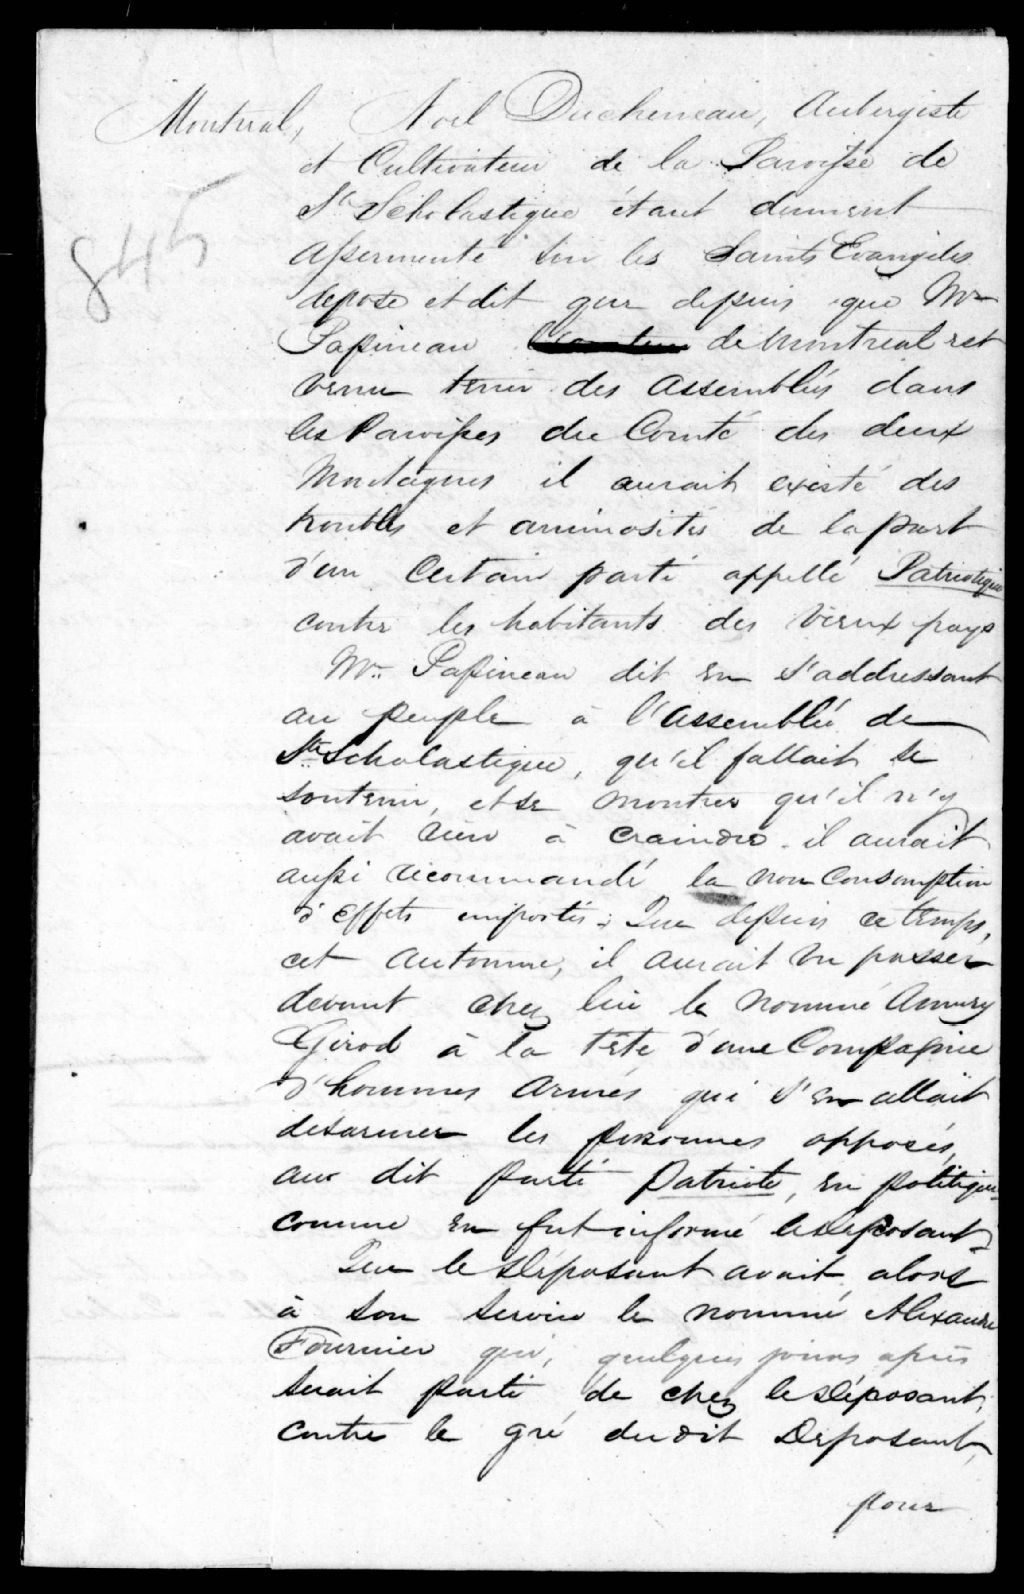 Montreal, Noel Ducheneau, Aubergiste
et Cultivateur de la Paroisse de
845
Ste Scholastique étant dument
assermenté sur les Saints Evangiles
depose et dit que depuis que Mr
Papineau de Montreal est
venu tenir des assemblés dans
les Paroisses du Comté des deux
Montagnes il aurait existé des
troubles et animosités de la part
d'un Certain parti appellé Patriotique
contre les habitants des vieux pays
Mr. Papineau dit en s'addressant
au peuple à l'assemblée de
Ste Scholastique, qu'il fallait se
soutenir, et se montrer qu'il n'y
avait rien à craindre. il aurait
aussi recommandé la non Consomption
d'Effets importés; Que depuis ce temps,
cet Automne, il aurait vu passer
devant chez lui le nommé Amury
Girod à la tête d'une Compagnie
d'hommes armés qui s'en allait
desarmer les personnes opposés
au dit parti Patriote, en politique
comme en fut informé le Déposant.
Que le Déposant avait alors
à son service le nommé Alexandre
Fournier qui, quelques jours après
serait parti de chez le Déposant,
contre le gré du dit Déposant,
pour